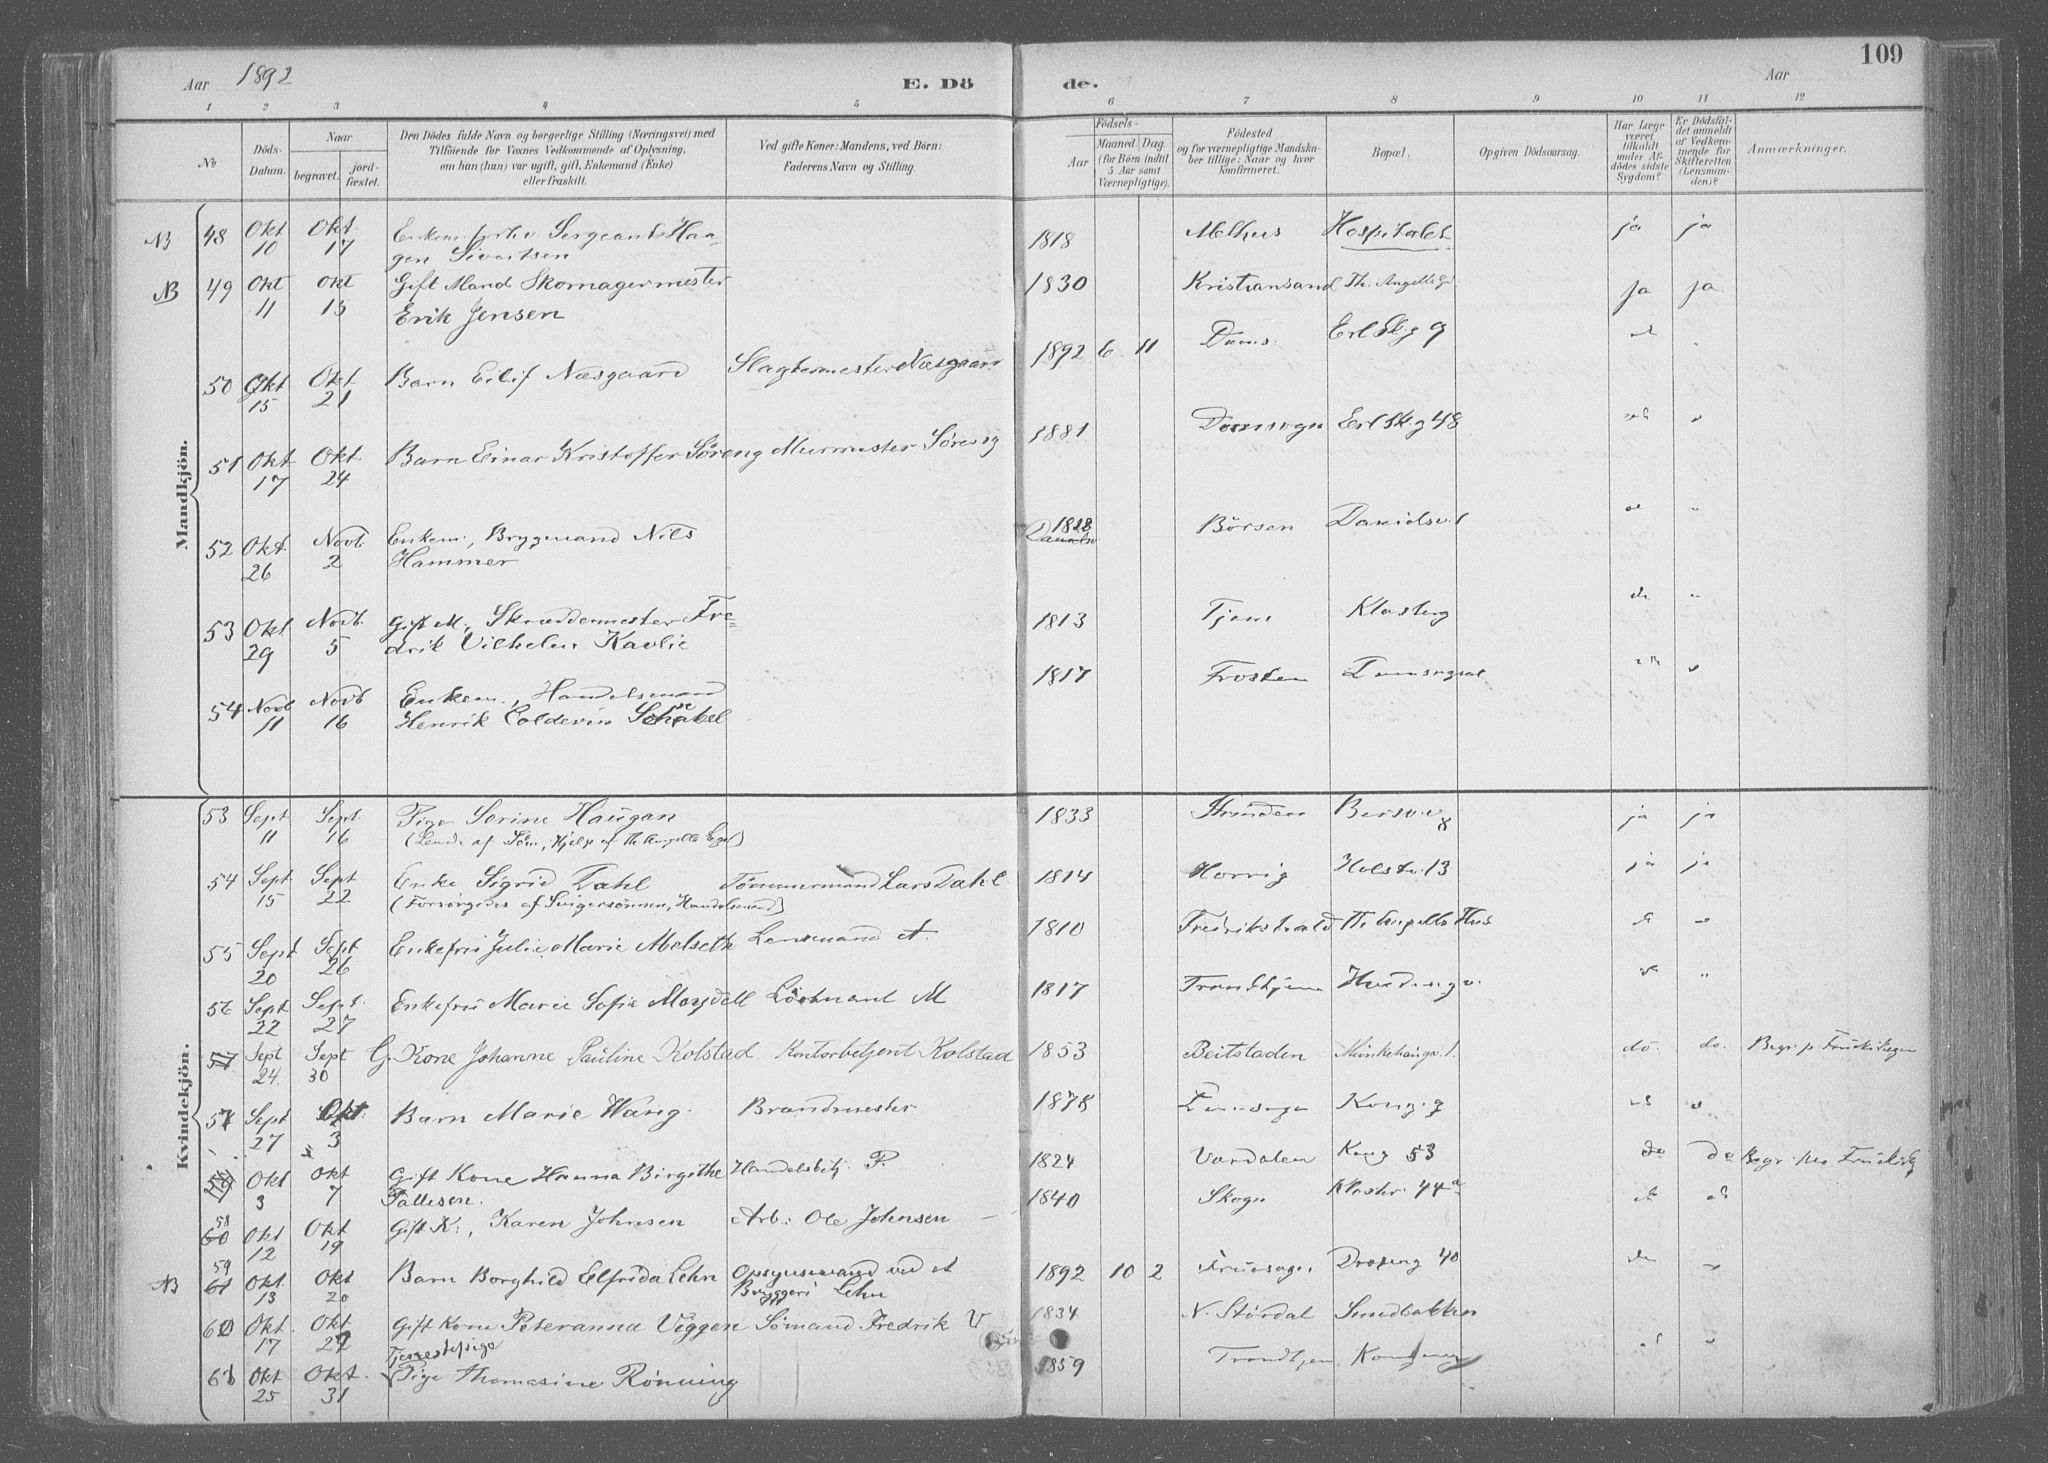 109
Aar 1892
E. Dö de.
Aar
1 2 3 4 5 6 7 8 9 10 11 12
No
Döds-Datum.
Naar
begravet.
jord-fæstet.
Den Dödes fulde Navn og borgerlige Stilling (Næringsvei) med
Tilföiende for Voxnes Vedkommende af Oplysning,
om han (hun) var ugift, gift, Enkemand (Enke)
eller fraskilt.
Ved gifte Koner: Mandens, ved Börn:
Faderens Navn og Stilling.
Födsels-
Aar
Maaned. Dag.
(for Börn indtil
5 Aar samt
Værnepligtige).
Födested
og for værnepligtige Mandska-
ber tillige: Naar og hvor
konfirmeret.
Bopæl.
Opgiven Dödsaarsag.
Har Læge
været
tilkaldt
under Af-
dödes sidste
Sygdom?
Er Dödsfal-
det anmeldt
af Vedkom-
mende for
Skifteretten
(Lensman-
den)?
Anmærkninger.
Mandkjön.
NB 48 Okt 10 Okt. 17 Enkem. forhv. Sergeant Haa-
gen Sivertsen 1818 Melhus Hospitalet ja ja
NB 49 Okt 11 Okt 15 Gift Mand Skomagermester
Erik Jensen 1830 Kristiansand Th. Angells G. ja ja
50 Okt 15 Okt 21 Barn Eilif Næsgaard Slagtermester Næsgaard 1892 6 11 Doms. Erl Skg 9
51 Okt 17 Okt. 24 Barn Einar Kristoffer Söreng Murmester Söreng 1881 Domsogn Erl Sk. g 48
52 Okt. 26 Novb. 2 Enkem., Brygmand Nils
Hammer 1818 Börsen Davidsv. 1
53 Okt. 29 Novb. 5 Gift M., Skræddermester Fre-
drik Vilhelm Kavlie 1813 Tjem Klosterg
54 Novb 11 Novb 16 Enkem., Handelsmand
Henrik Coldevin Schabel 1817 Frosten
Kvindekjön.
53 Sept 11 Sept. 16 Pige Serine Haugan
(Levde af Söm, Hjelp af Th Angells Leg.) 1833 Strinden ja ja
54 Sept 15 Sept 22 Enke Sigrid Dahl Tömmermand Lars Dahl
(Forsörgedes af Svigersönnen, Handelsmand) 1814 Horrig Holstv. 13 ja ja
55 Sept 20 Sept 26 Enkefru Julie Marie Melseth Lensmand 1810 Fredrikshald Th Angells Hus
56 Sept 22 Sept. 27 Enkefru Marie Sofie Moydell Löitnant M 1817 Trondhjem
57 Sept 24 Sept 30 G. Kone Johanne Pauline Kolstad. Kontorbetjent Kolstad 1853 Beitstaden Munkehaugv. 1. do. do. Begr. p.
57 Sept 27 Okt. 3 Barn Marie Wang. Brandmester 1878 Domsogn Kong. g
Okt 3 Okt 7 Gift Kone Hanna Birgithe
Pallesen. Handelsbetj. P. 1824 Værdalen Kong 53 do do
58 Okt 12 Okt 19 Gift K:, Karen Johnsen Arb: Ole Johnsen 1840 Skogn Kloster. 44a
NB 59 Okt. 13 Okt 20 Barn Borghild Elfrida Lehn Opsynsmand ved et
Bryggeri Lehn 1892 10 2 Fruesogn 40
60 Okt. 17 Okt 27 Gift Kone Peteranna Viggen Sömand Fredrik V 1834 N. Stördal Smedbakken
61 Okt 25 Okt. 31 Tjenestepige
Pige Thomasine Rönning 1859 Trondhjem